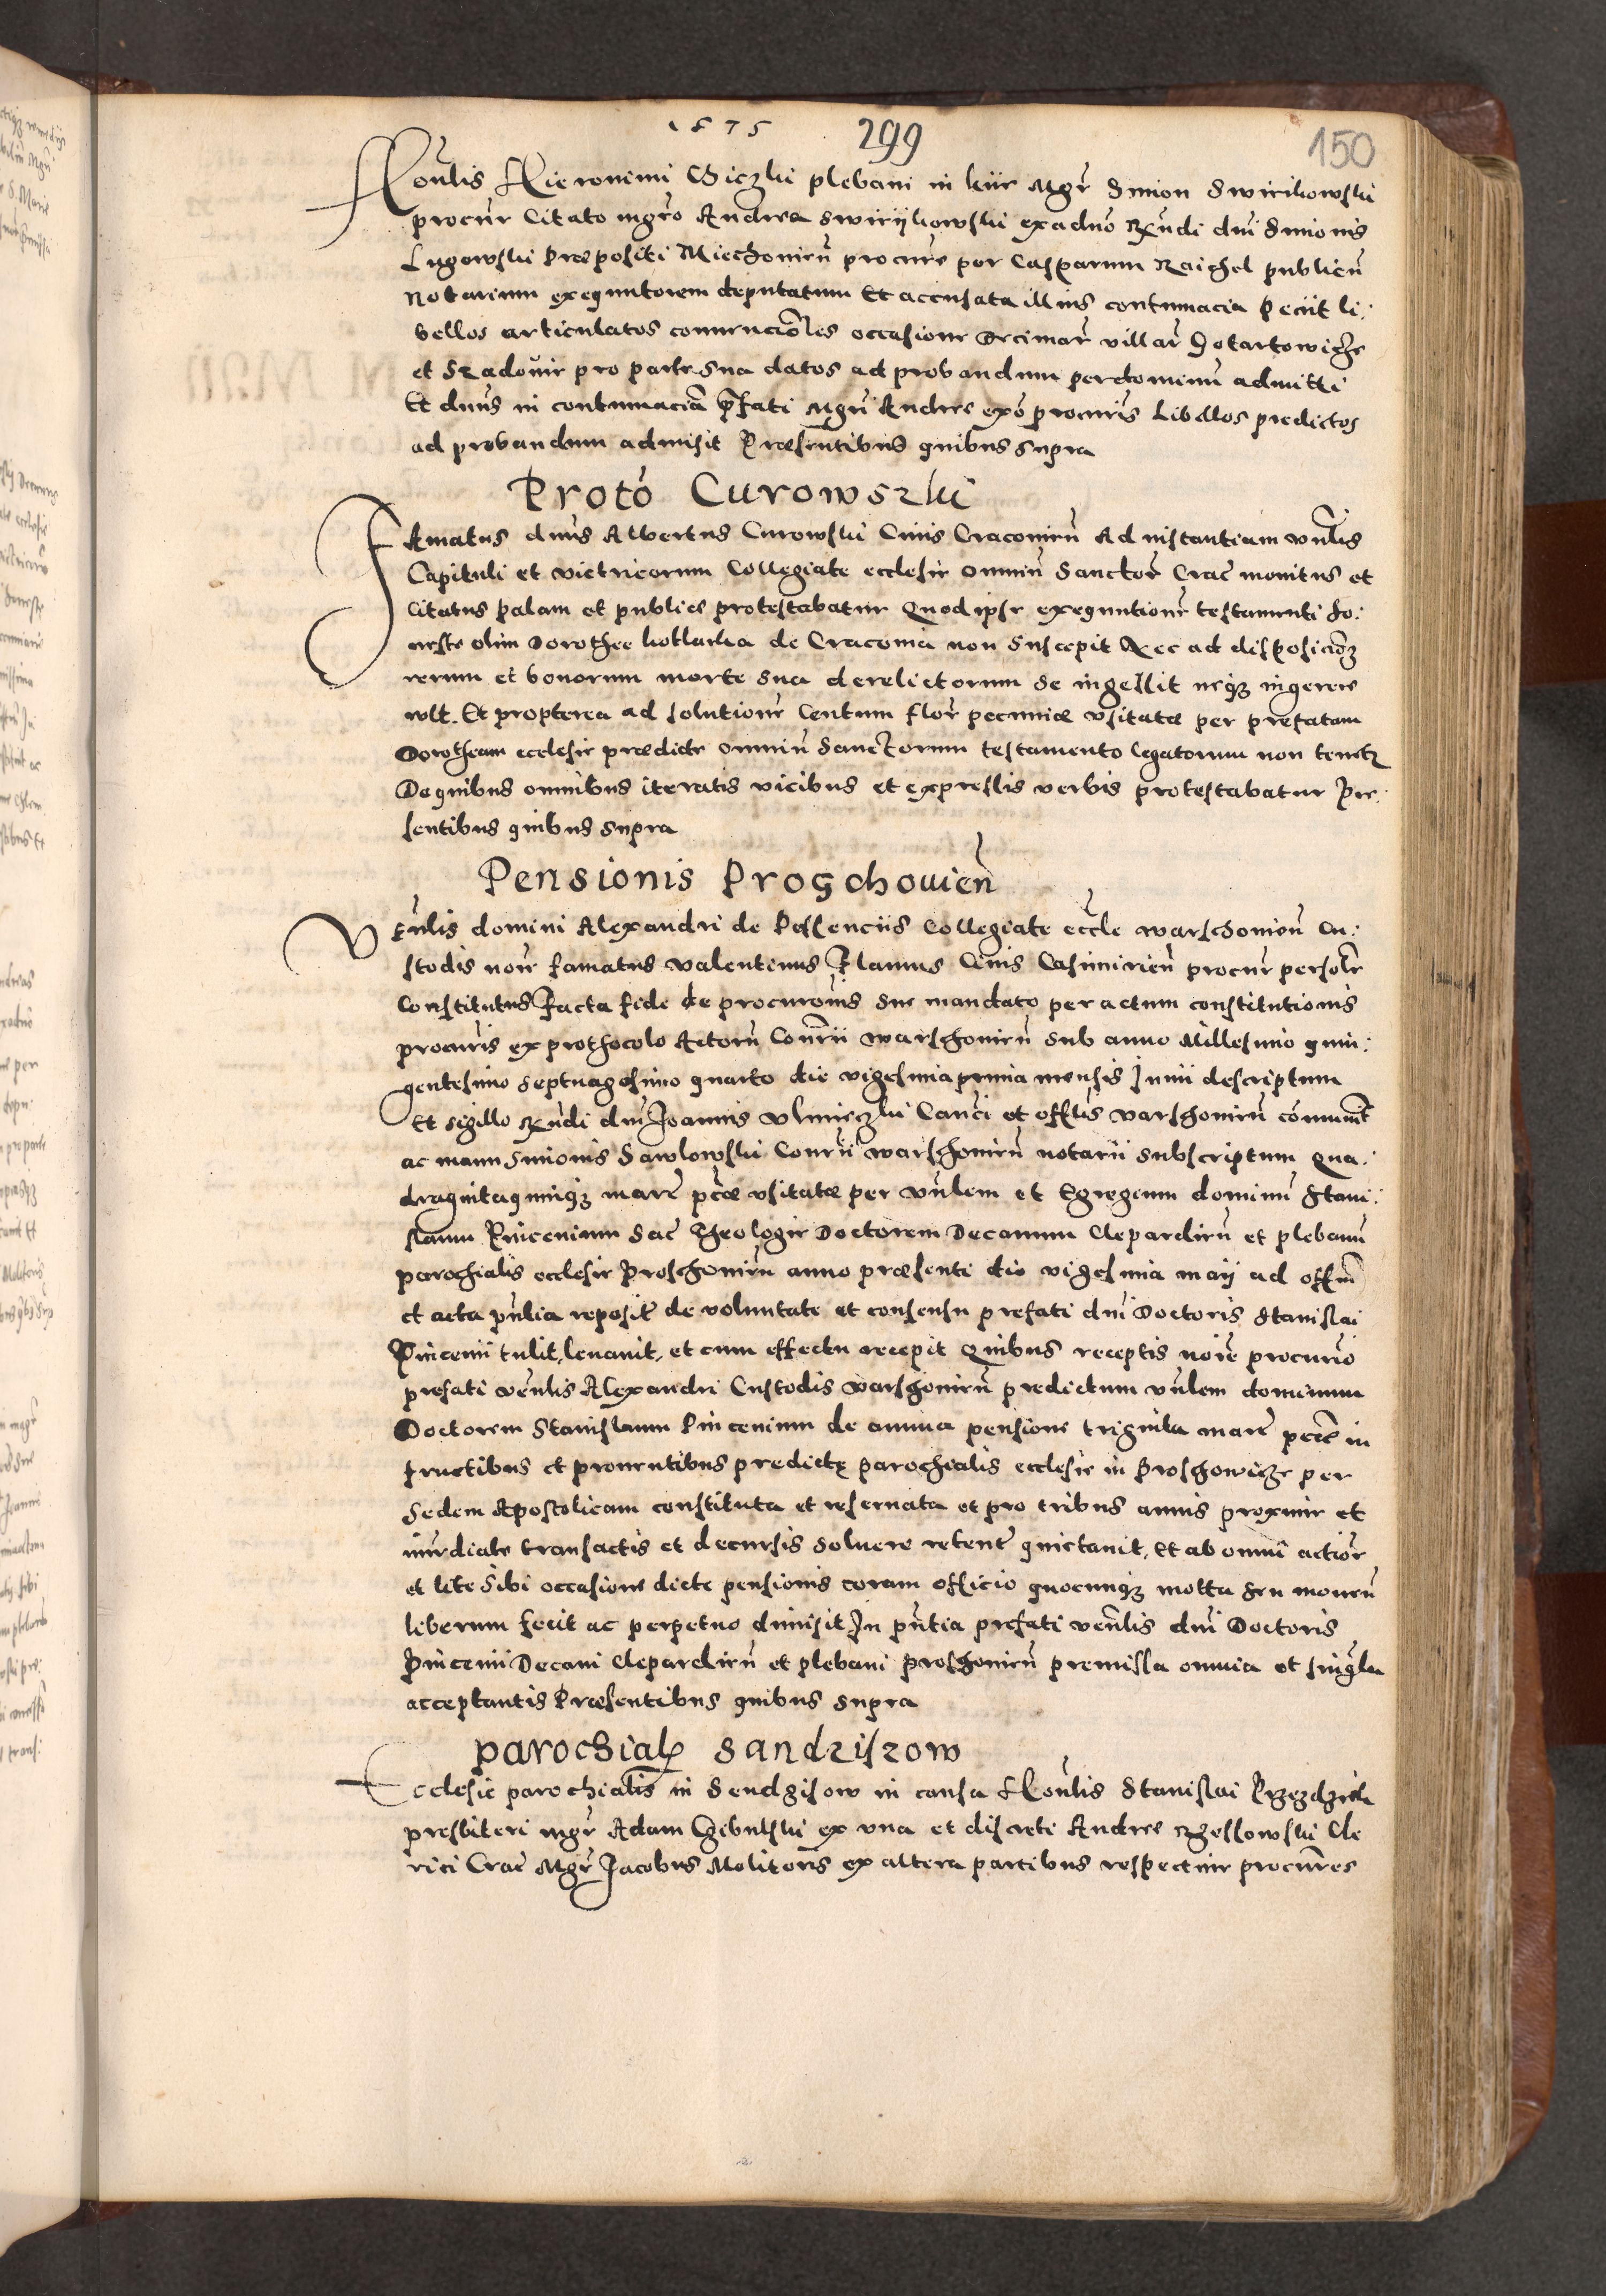 1575 299 150
Honlis Hieronimi Giczki plebani in kiie Mgr Simon Swirikowski
procur Citato mgro Andrea Swiriikowski ex aduo Rndi dni Simonis
Lugowski Præpositi Miechouien procure per Casparum Raichel publicu
Notarium exequutorem deputatum Et accusata illius contumacia Peciit li:
bellos articulatos conuencioles occasione decimar villar
et pro parte sua datos ad probandum per dominu admitti
Et dnus in contumacia pfati Mgri Andree exo procuris Libellos predictos
ad probandum admisit Præsentibus quibus supra
Proto Curowszki
Famatus dnus Albertus Curowski Ciuis Cracouien Ad instantiam vnlis
Capituli et vietricorum Collegiate ecclesie omniu Sanctor Crac monitus et
Citatus Palam et publice protestabatur Quod ipse exequutione testamenti ho:
neste olim Dorothee kotlarka de Cracouia non Suscepit Nec ad disposicioez
rerum et bonorum morte sua derelictorum se ingessit neqz ingerere
wlt. Et propterea ad solutione Centum flor pecuniæ vsitatæ per prefatam
Dorotheam ecclesie prædicte omniu Sanctorum testamento legatorum non tenetr
De quibus omnibus iteratis vicibus et expressis verbis protestabatur Pre:
sentibus quibus supra
Pensionis Proschouien
Venlis domini Alexandri de Pessenciis Collegiate eccle warschouien Cu:
stodis noie famatus valentinus Flamus Ciuis Casimirien procur persolr
Constitutus Facta fide de procuronis sue mandato per actum constitutionis
procuris ex prothocolo Actoru Consrii warschouien sub anno Millesimo quin:
gentesimo septuagesimo quarto die vigesima prima mensis Junii descriptum
Et sigillo Rndi dni Joannis vlmieczki Canci et offlis varschouien communit
ac manu Simonis Sawlowski Consrii warschouien notarii subscriptum Qua:
dragintaquinqz marc pcæ vsitatæ per vnlem et Egregium dominu Stani:
slaum Pincenium Sac Theologie Doctorem Decanum Clepardien et plebanu
parochialis ecclesie Proschouien anno præsenti die vigesima maij ad offm
et acta pnlia reposit de voluntate et consensu prefati dni Doctoris Stanislai
Pincenii tulit, leuauit, et cum effectu recepit Quibus receptis noie procurio
prefati venlis Alexandri Custodis varschouien predictum vnlem dominum
Doctorem Stanislaum Pincenium de annua pensione triginta marc pcce in
fructibus et prouentibus predictę parochialis ecclesie in Proschowicze per
Sedem Apostolicam constituta et reseruata et pro tribus annis proxime et
imediate transactis et decursis soluere retent quietauit, Et ab omni actior
et lite sibi occasione dicte pensionis coram officio quocunqz motta seu mouen
liberum fecit ac perpetuo dimisit In pntia prefati venlis dni Doctoris
Pincenii Decani Clepardien et plebani proschouien premissa omnia et singla
acceptantis Præsentibus quibus supra
parochial Sandziszow
Ecclesie parochialis in Sendzisow in causa Honlis Stanislai
presbiteri mgr Adam Czibulski ex vna et discreti Andree Rzessowski Cle
rici Crac Mgr Jacobus Molitoris ex altera partibus respectiue procures